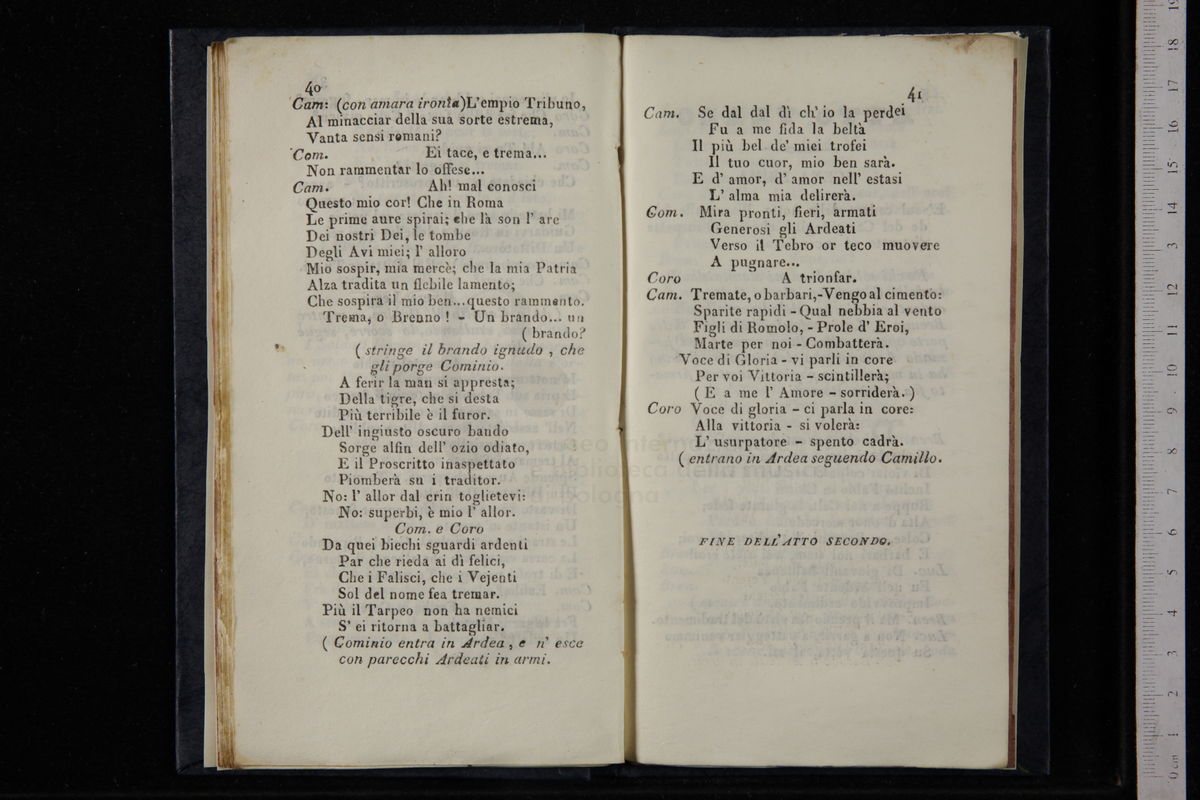 40
Cam: (con amara ironia)L'empio Tribuno,
Al minacciar della sua sorte estrema,
Vanta sensi romani?
Com. Ei tace, e trema...
Non rammentar lo offese...
Cam. Ah! mal conosci
Questo mio cor! Che in Roma
Le prime aure spirai; che là son l' are
Dei nostri Dei, le tombe
Degli Avi miei; l' alloro
Mio sospir, mia mercè; che la mia Patria
Alza tradita un flebile lamento;
Che sospira il mio ben...questo rammento.
Trema, o Brenno ! - Un brando... un
( brando?
( stringe il brando ignudo , che
gli porge Cominio.
A ferir la man si appresta;
Della tigre, che si desta
Più terribile è il furor.
Dell' ingiusto oscuro bando
Sorge alfin dell' ozio odiato,
E il Proscritto inaspettato
Piomberà su i traditor.
No: l' allor dal crin toglietevi:
No: superbi, è mio l' allor.
Com. e Coro
Da quei biechi sguardi ardenti
Par che rieda ai dì felici,
Che i Falisci, che i Vejenti
Sol del nome fea tremar.
Più il Tarpeo non ha nemici
S' ei ritorna a battagliar.
( Cominio entra in Ardea , e n' esce
con parecchi Ardeati in armi.
41
Cam. Se dal dal dì ch' io la perdei
Fu a me fida la beltà
Il più bel de' miei trofei
Il tuo cuor, mio ben sarà.
E d' amor, d' amor nell' estasi
L' alma mia delirerà.
Com. Mira pronti, fieri, armati
Generosi gli Ardeati
Verso il Tebro or teco muovere
A pugnare...
Coro A trionfar.
Cam. Tremate, o barbari,-Vengo al cimento:
Sparite rapidi - Qual nebbia al vento
Figli di Romolo, - Prole d' Eroi,
Marte per noi - Combatterà.
Voce di Gloria - vi parli in core
Per voi Vittoria - scintillerà;
( E a me l' Amore - sorriderà. )
Coro Voce di gloria - ci parla in core:
Alla vittoria - si volerà:
L' usurpatore - spento cadrà.
( entrano in Ardea seguendo Camillo.
FINE DELL'ATTO SECONDO.